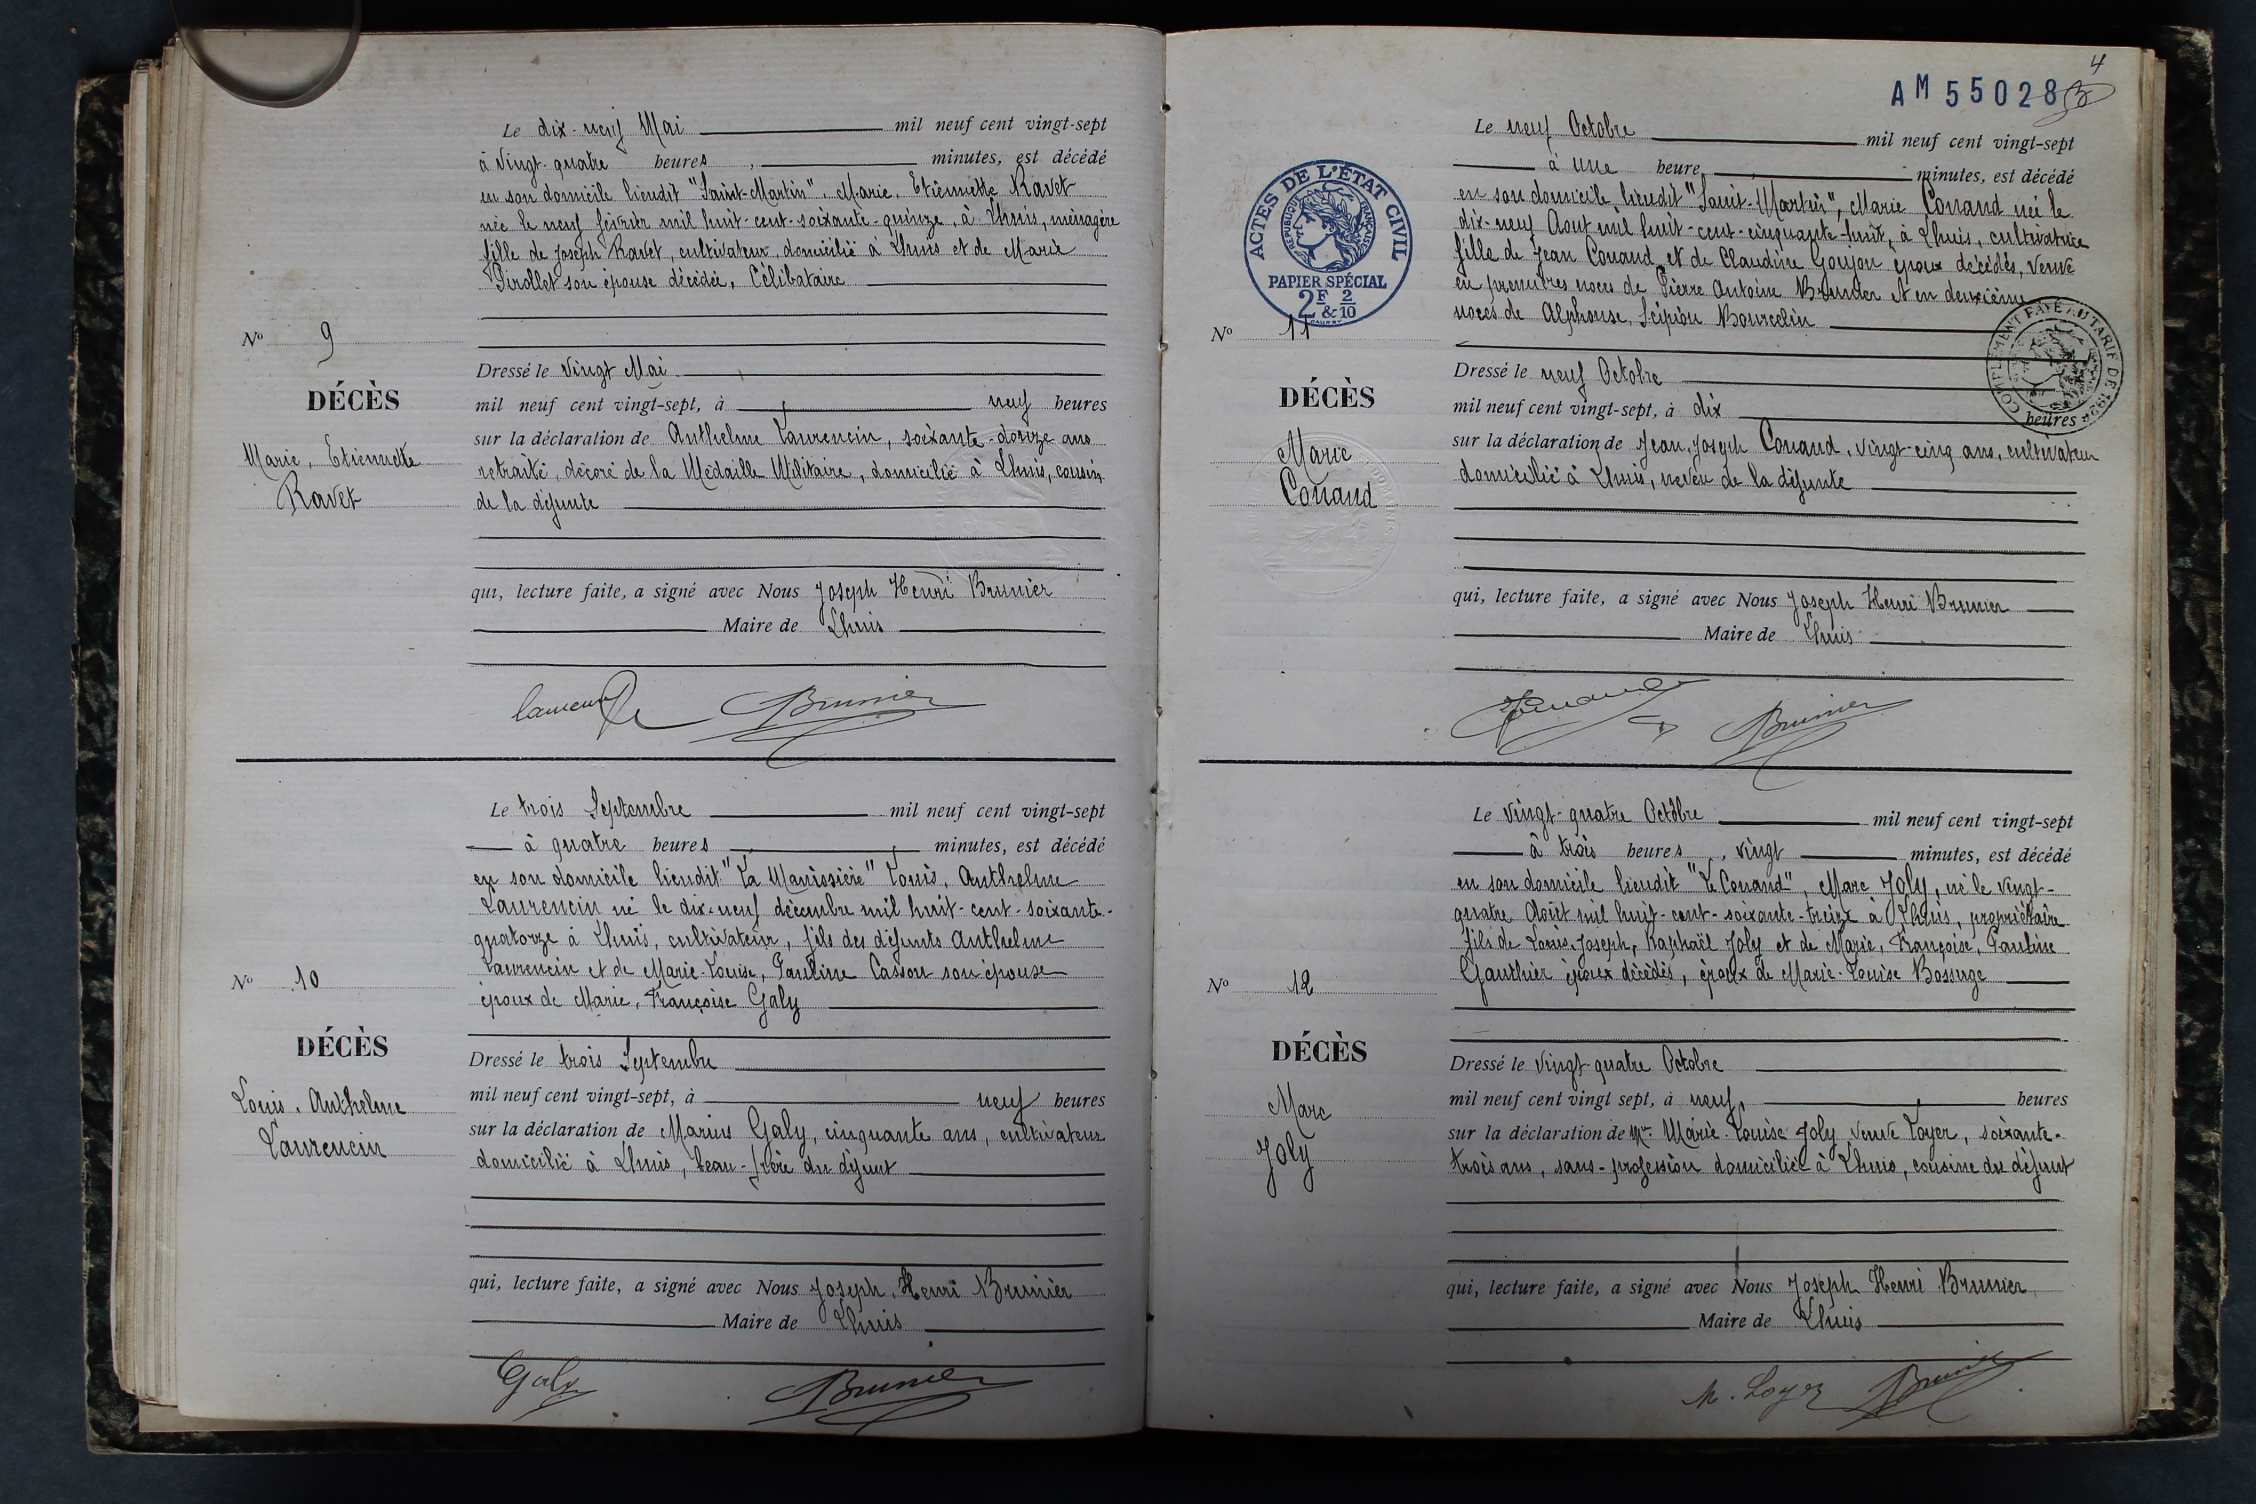 Le dix-neuf Mai mil neuf cent vingt-sept
à Vingt-quatre heures, minutes, est décédé
en son domicile lieudit "Saint-Martin", Marie, Etiennette Ravet
née le neuf février mil huit-cent-soixante-quinze, à Lhuis, ménagère
fille de Joseph Ravet, cultivateur, domicilié à Lhuis et de Marie
Pirollet son épouse décédée, Célibataire
No 9
Dressé le vingt Mai
DÉCÈS
mil neuf cent vingt-sept, à neuf heures
sur la déclaration de Anthelme Laurencin, soixante-douze ans
Marie, Etiennette
retraité, décoré de la Médaille Militaire, domicilié à Lhuis, cousin
Ravet
de la défunte
qui, lecture faite, a signé avec Nous Joseph Henri Brunier
Maire de Lhuis
Brunier
Le trois Septembre mil neuf cent vingt-sept
à quatre heures, minutes, est décédé
en son domicile lieudit "La Maniosière" Louis, Anthelme
Laurencin né le dix-neuf décembre mil huit-cent-soixante-
quatorze à Lhuis, cultivateur, fils des défunts Anthelme
Laurencin et de Marie-Louise, Pauline Casson son épouse
No 10
époux de Marie, Françoise Galy
DÉCÈS
Dressé le trois Septembre
mil neuf cent vingt-sept, à neuf heures
Louis, Anthelme
Laurencin
sur la déclaration de Marius Galy, cinquante ans, cultivateur
domicilié à Lhuis, beau-frère du défunt
qui, lecture faite, a signé avec Nous Joseph, Henri Brunier
Maire de Lhuis
Galy Brunier
4
AM 55028
Le neuf Octobre mil neuf cent vingt-sept
à une heure, minutes, est décédé
ACTES DE L'ÉTAT CIVIL
RÉPUBLIQUE FRANÇAISE
PAPIER SPÉCIAL
2F & 2/10
en son domicile, lieudit "Saint-Martin", Marie Conand née le
dix-neuf Aout mil huit-cent-cinquante-huit, à Lhuis, cultivatrice
fille de Jean Conand et de Claudine Goujon époux décédés, Veuve
en premières noces de Pierre Antoine Brunier et en deuxième
noces de Alphonse, Scipion Bourcelin
COMPLÉMENT PAYÉ AU TARIF DE
No 11
Dressé le neuf Octobre
DÉCÈS
mil neuf cent vingt-sept, à dix heures
sur la déclaration de Jean, Joseph Conand, vingt-cinq ans, cultivateur
Marie
Conand
domicilié à Lhuis, neveu de la défunte
qui, lecture faite, a signé avec Nous Joseph Henri Brunier
Maire de Lhuis
Brunier
Le vingt-quatre Octobre mil neuf cent vingt-sept
à trois heures, vingt minutes, est décédé
en son domicile lieudit "Le Conand", Marc Joly, né le vingt-
quatre Août mil huit-cent-soixante-treize à Lhuis, propriétaire
fils de Louis, Joseph, Raphaël Joly et de Marie, Françoise, Pauline
Gauthier époux décédés, époux de Marie-Louise Bossuge
No 12
DÉCÈS
Dressé le vingt-quatre Octobre
mil neuf cent vingt sept, à neuf, heures
Marc
Joly
sur la déclaration de Me Marie-Louise Joly Veuve Loyer, soixante-
trois ans, sans-profession domiciliée à Lhuis, cousine du défunt
qui, lecture faite, a signé avec Nous Joseph Henri Brunier
Maire de Lhuis
M. Loyer Brunier